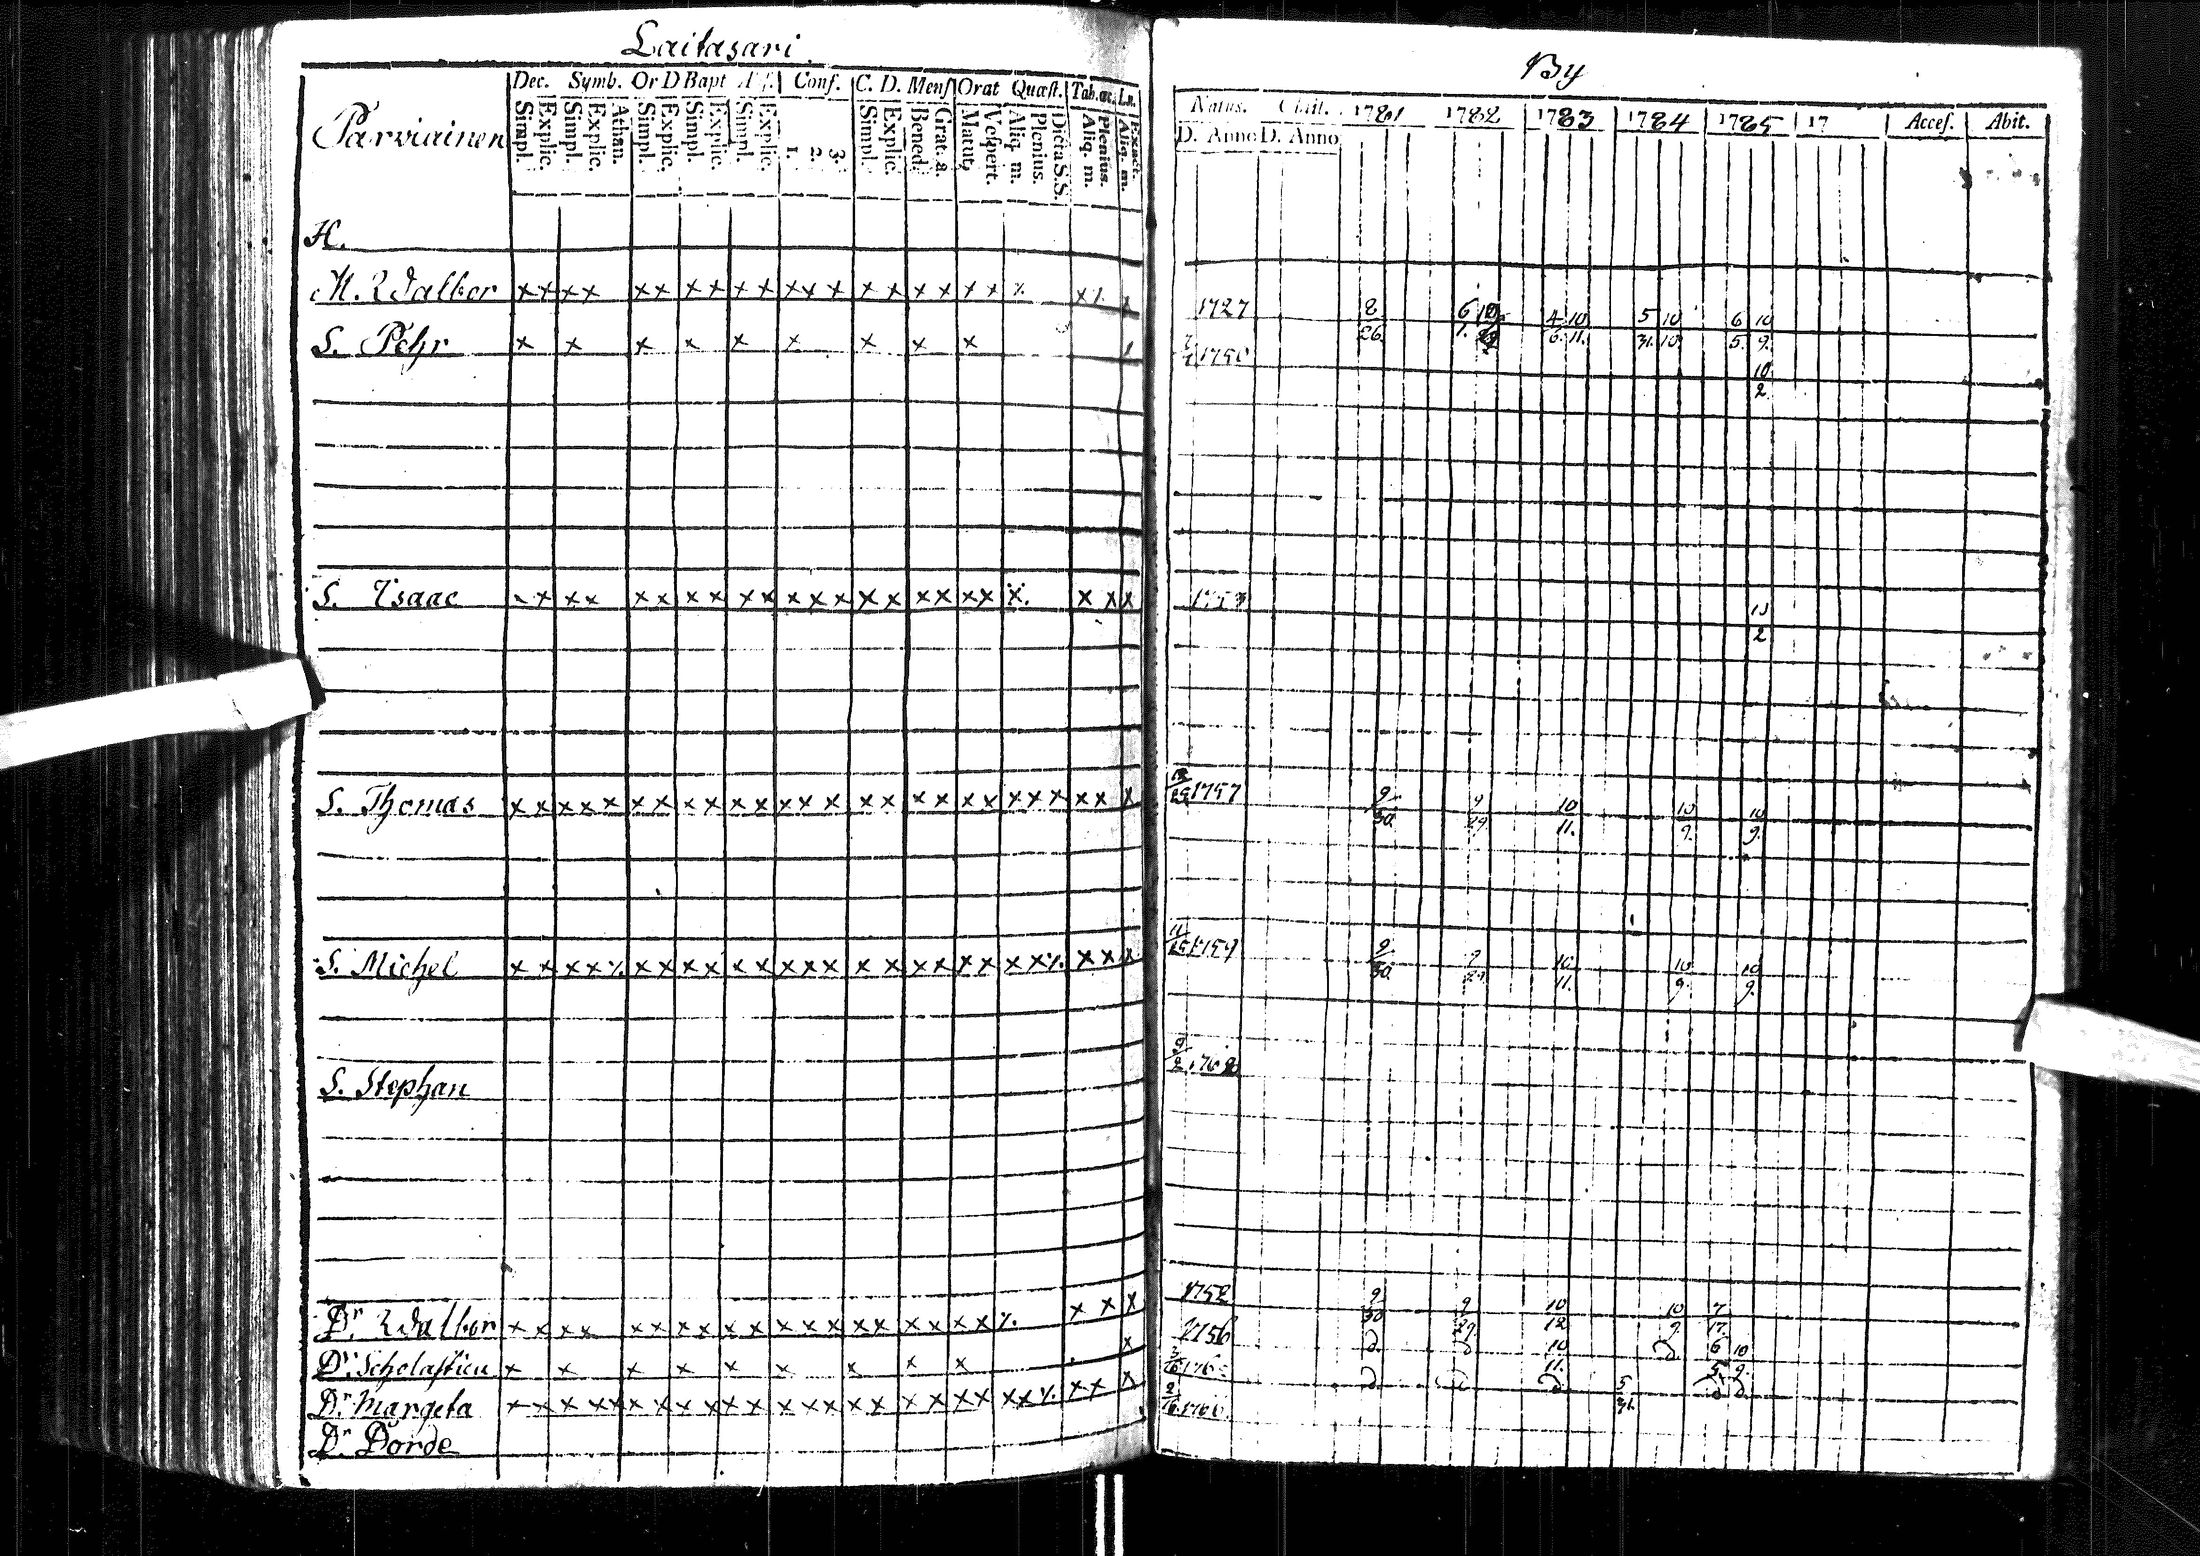 Laitasari
By
Dec. Symb. Or D Bapt Conf. C. D. Mens Orat Quæst. Tab. œc.
Parviainen
Simpl. Explic. Simpl. Explic. Athan. Simpl. Explic. Simpl. Explic. Simpl. Explic. 1. 2. 3. Simpl. Explic. Bened. Grat. a. Matut. Vespert. Aliq. m. Plenius. Dicta S.S. Aliq. m. Plenius. Aliq. m. Exact.
Natus. 1781 1782 1783 1784 1785 17 Acces. Abit.
D. Anno D. Anno
H.
M. Walbor x x x x x x x x x x x x x x x x x x x
1727 8/26 4/6. 10/11. 5/31. 10/10 6/5. 10/9.
S. Pehr x x x x x x x x x
10/2
S. Isaac x x x x x x x x x x x x x x x x x x x x x x
S. Thomas x x x x x x x x x x x x x x x x x x x x x x x x x x
1757 9/30 9/29 10/11. 10/9. 10/9.
S. Michel x x x x x x x x x x x x x x x x x x x x x x x x
11/25 1759 9/30 9/29 10/11. 10/9. 10/9.
S. Stephan
Dr Walbor x x x x x x x x x x x x x x x x x x x x x
1752 9/30 9/29. 10/12. 10/9 7/17.
Dr Scholastica x x x x x x x x x x
1756 10/11. 6/5. 10/9.
Dr Margeta x x x x x x x x x x x x x x x x x x x x x x x
5/31.
Dr Dorde
1766.